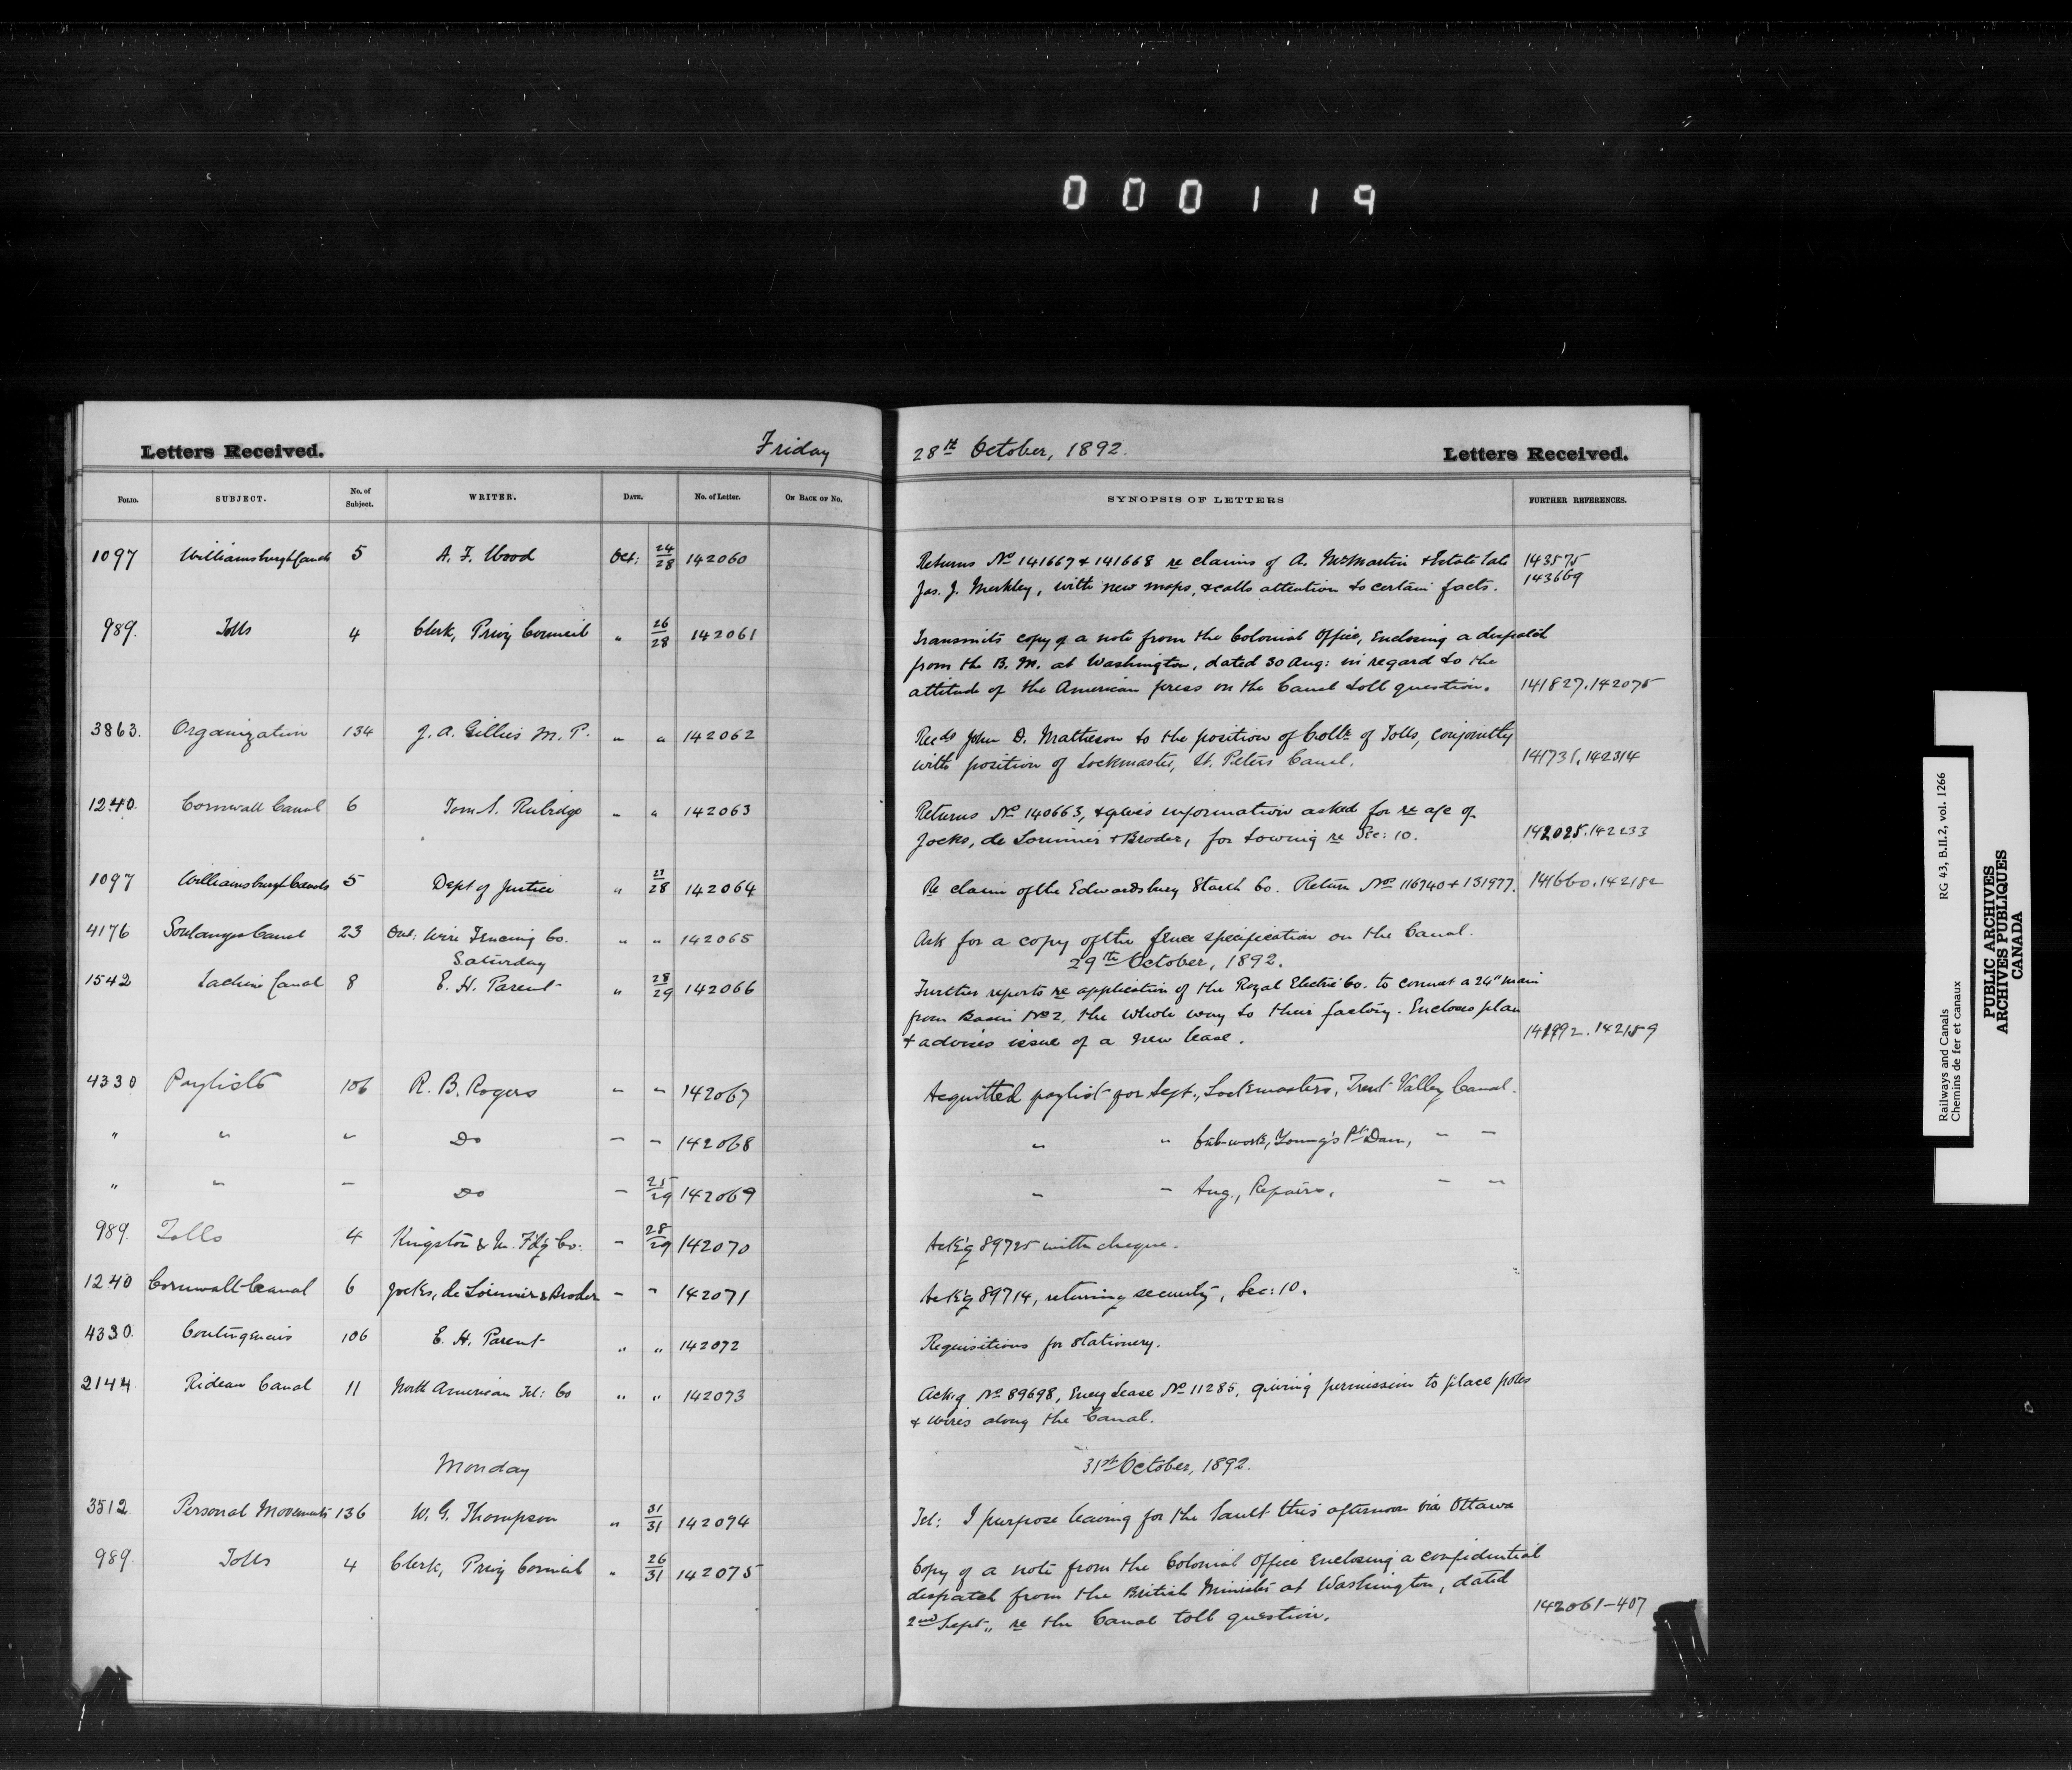 000119
Letters Received. Friday 28th October, 1892. Letters Received.
FOLIO. SUBJECT. No. of Subject. WRITER. DATE. No. of Letter. ON BACK OF NO. SYNOPSIS OF LETTERS FURTHER REFERENCES.
1097 Williamsburgh Canals 5 A. F. Wood Oct: 24/28 142060 Returns No 141667 & 141668 re claims of A. McMartin & Estate late 143575
Jas. J. Merkley, with new maps, & calls attention to certain facts. 143669
989. Tolls 4 Clerk, Privy Council " 26/28 142061 Transmits copy of a note from the Colonial Office, Enclosing a despatch
from the B. M. at Washington, dated 30 Aug: in regard to the
attitude of the American press on the Canal toll question. 141827.142075
3863. Organization 134 J. A. Gillies M. P. " " 142062 Recds John D. Matheson to the position of Collr of Tolls, conjointly
with position of Lockmaster, St. Peters Canal. 141731.142314
1240. Cornwall Canal 6 Tom S. Rubidge " " 142063 Returns No 140663, & gives information asked for re a/c of
Jocks, de Lorimier & Broder, for towing re Sec: 10. 142025.142233
1097 Williamsburgh Canals 5 Dept of Justice " 27/28 142064 Re claim of the Edwardsburg Starch Co. Return Nos 116740 & 131977. 141660.142182
4176 Soulanges Canal 23 Ont: Wire Fencing Co. " " 142065 Ask for a copy of the fence specification on the Canal.
Saturday 29th October, 1892.
1542 Lachine Canal 8 E. H. Parent " 28/29 142066 Further reports re application of the Royal Electric Co. to connect a 24" main
from Basin No 2, the whole way to their factory. Encloses plan
& advises issue of a new lease. 141992.142159
4330 Paylists 106 R. B. Rogers " " 142067 Acquitted paylist for Sept., Lockmasters, Trent Valley Canal.
" " " Do " " 142068 " " Crib-work, Young's Pt Dam, " "
" " " Do " 25/29 142069 " " Aug., Repairs, " "
989. Tolls 4 Kingston & M. F'd'g Co. " 28/29 142070 Ack'g 89725 with cheque.
1240 Cornwall Canal 6 Jocks, de Lorimier & Broder " " 142071 Ack'g 89714, returning security, Sec: 10.
4330. Contingencies 106 E. H. Parent " " 142072 Requisitions for stationery.
2144 Rideau Canal 11 North American Tel: Co " " 142073 Ackg No 89698, Encg Lease No 11285, giving permission to place poles
& wires along the Canal.
Monday 31st October, 1892.
3512 Personal Movements 136 W. G. Thompson " 31/31 142074 Tel: I purpose leaving for the Sault this afternoon via Ottawa
989. Tolls 4 Clerk, Privy Council " 26/31 142075 Copy of a note from the Colonial Office Enclosing a confidential
despatch from the British Minister at Washington, dated
2nd Sept., re the Canal toll question. 142061-407
Railways and Canals RG 43, B.II.2, vol. 1266
Chemins de fer et canaux
PUBLIC ARCHIVES
ARCHIVES PUBLIQUES
CANADA